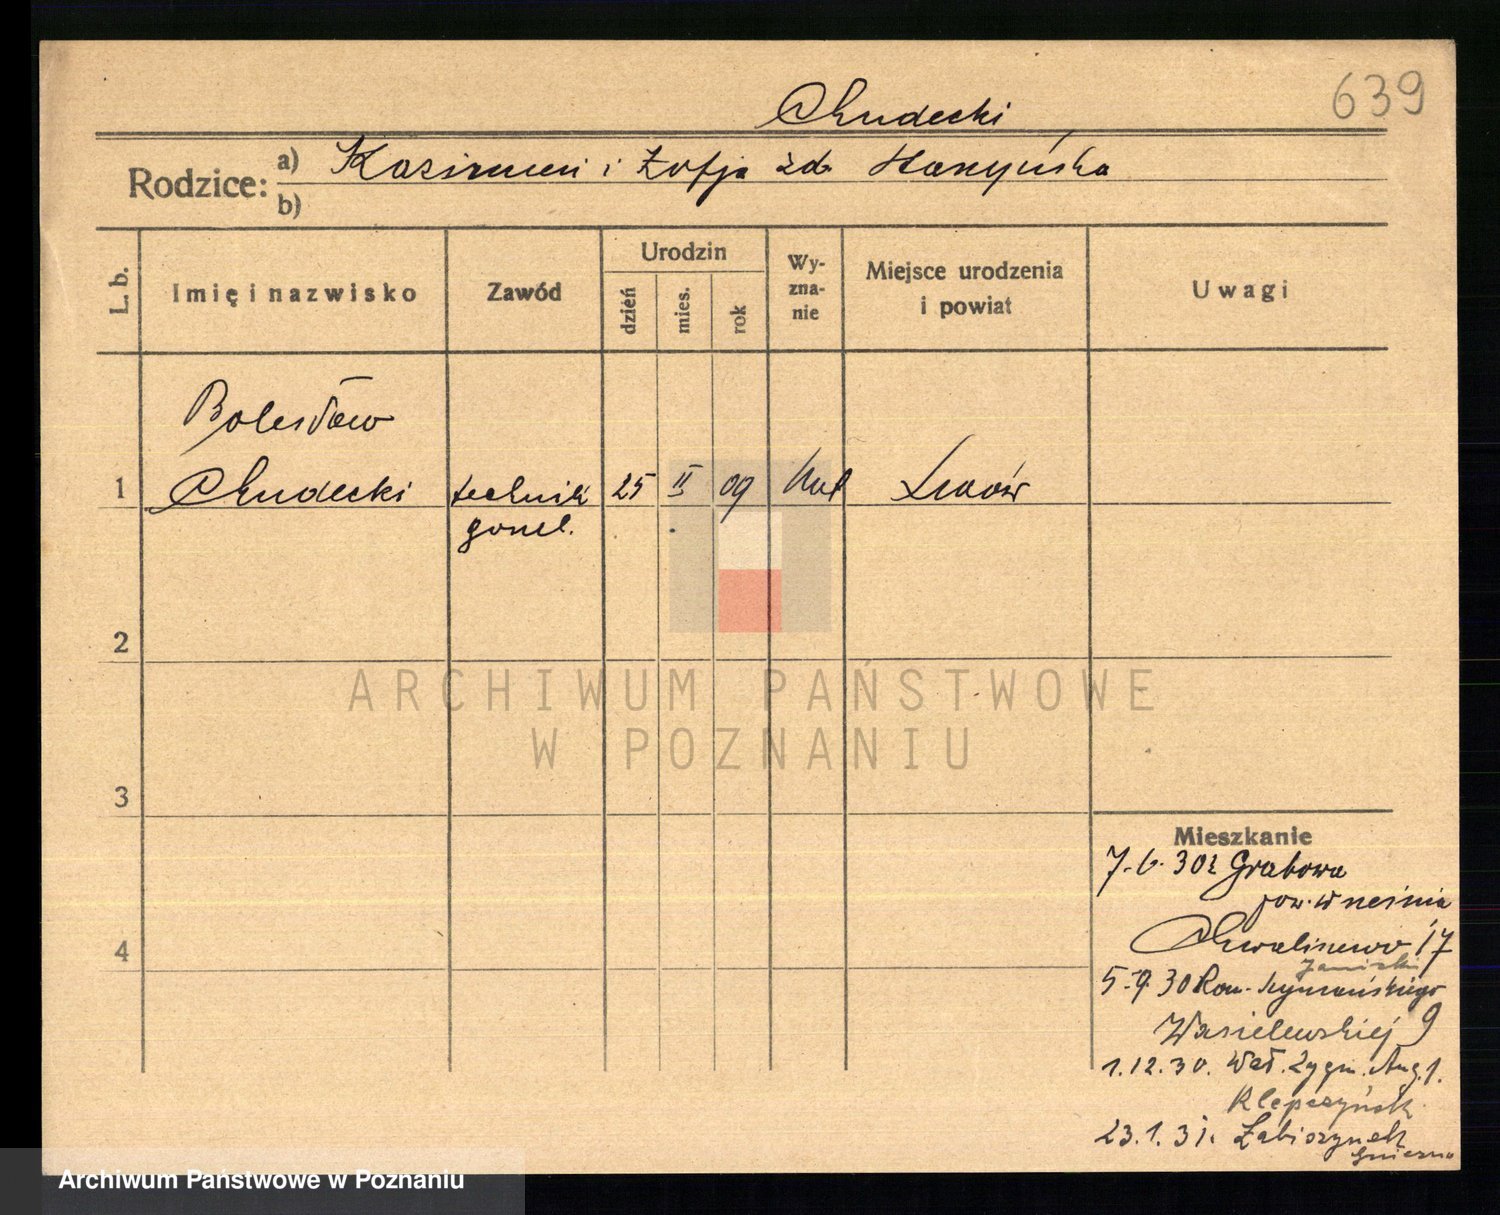 639
Chudecki
Rodzice: a) Kazimierz i Zofja zd.
b)
L. b.
Imię i nazwisko
Zawód
Urodzin
dzień
mies.
rok
Wy-
zna-
nie
Miejsce urodzenia
i powiat
Uwagi
Bolesław
1 Chudecki technik 25 II 09 Lwów
gorzel.
2
3
4
Mieszkanie
7.6.30 z Grabowa
pow. Września
17
5.9.30 Rom. Szymańskiego
Wasielewskiej 9
1.12.30. Wał. Zygm. Aug. 1.
23.1.31.
Gniezno
ARCHIWUM PAŃSTWOWE
W POZNANIU
Archiwum Państwowe w Poznaniu